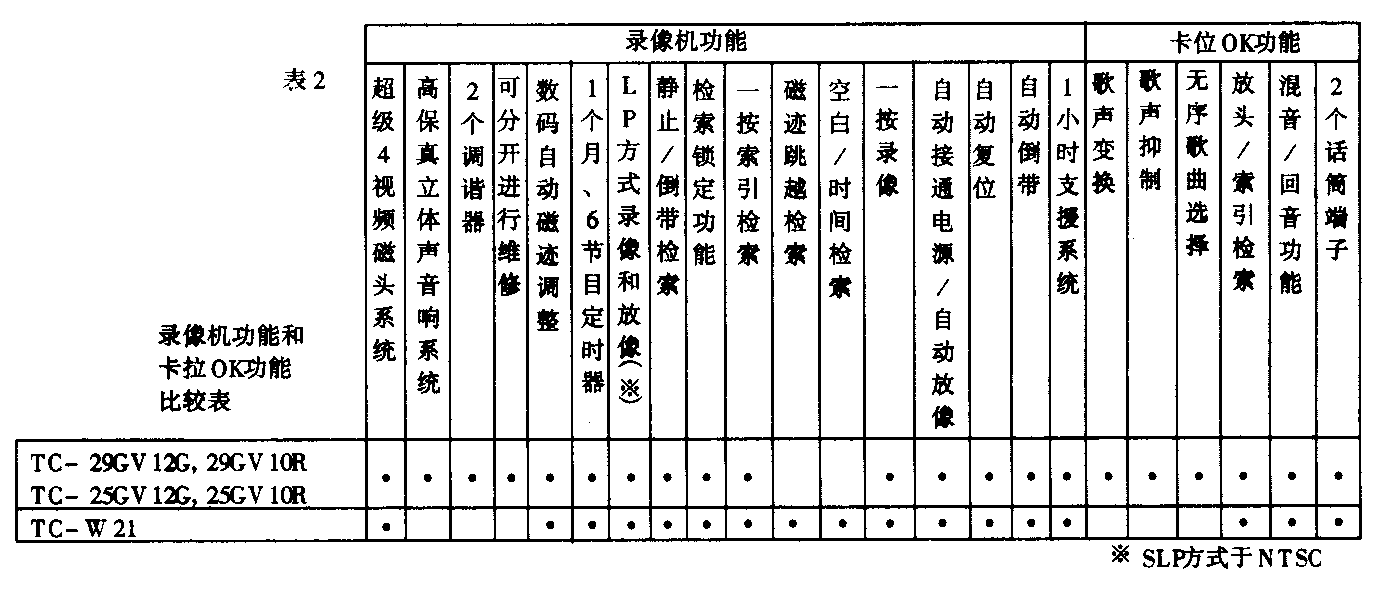 录像机功能 卡位OK功能
表2
超级4视频磁头系统
高保真立体声音响系统
2个调谐器
可分开进行维修
数码自动磁迹调整
1个月、6节目定时器
LP方式录像和放像(※)
静止/倒带检索
检索锁定功能
一按索引检索
磁迹跳越检索
空白/时间检索
一按录像
自动接通电源/自动放像
自动复位
自动倒带
1小时支授系统
歌声变换
歌声抑制
无序歌曲选择
放头/索引检索
混音/回音功能
2个话筒端子
录像机功能和
卡拉OK功能
比较表
TC-29GV12G, 29GV10R
TC-25GV12G, 25GV10R
• • • • • • • • • • • • • • • • • • • • •
TC-W21 • • • • • • • • • • • • • • • • • •
※ SLP方式于NTSC